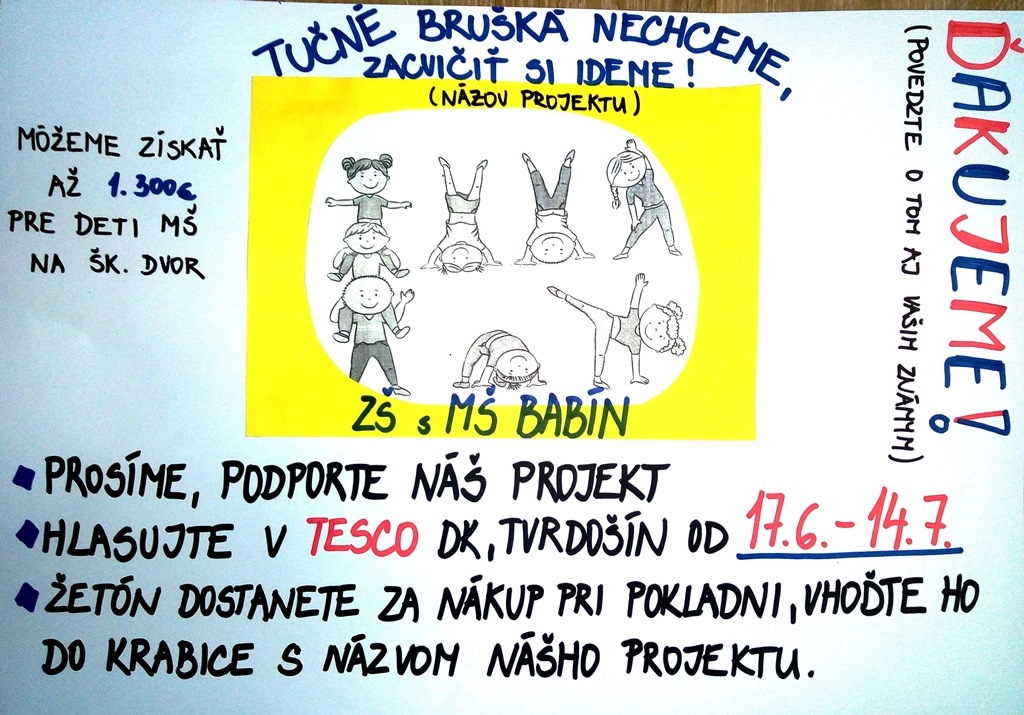 TUČNÉ BRUŠKÁ NECHCEME,
ZACVIČIŤ SI IDEME!
(NÁZOV PROJEKTU)
MÔŽEME ZÍSKAŤ
AŽ 1.300€
PRE DETI MŠ
NA ŠK. DVOR
ZŠ s MŠ BABÍN
ĎAKUJEME!
(POVEDZTE O TOM AJ VAŠIM ZNÁMYM)
PROSÍME, PODPORTE NÁŠ PROJEKT
HLASUJTE V TESCO DK, TVRDOŠÍN OD 17.6.-14.7.
ŽETÓN DOSTANETE ZA NÁKUP PRI POKLADNI, VHOĎTE HO
DO KRABICE S NÁZVOM NÁŠHO PROJEKTU.